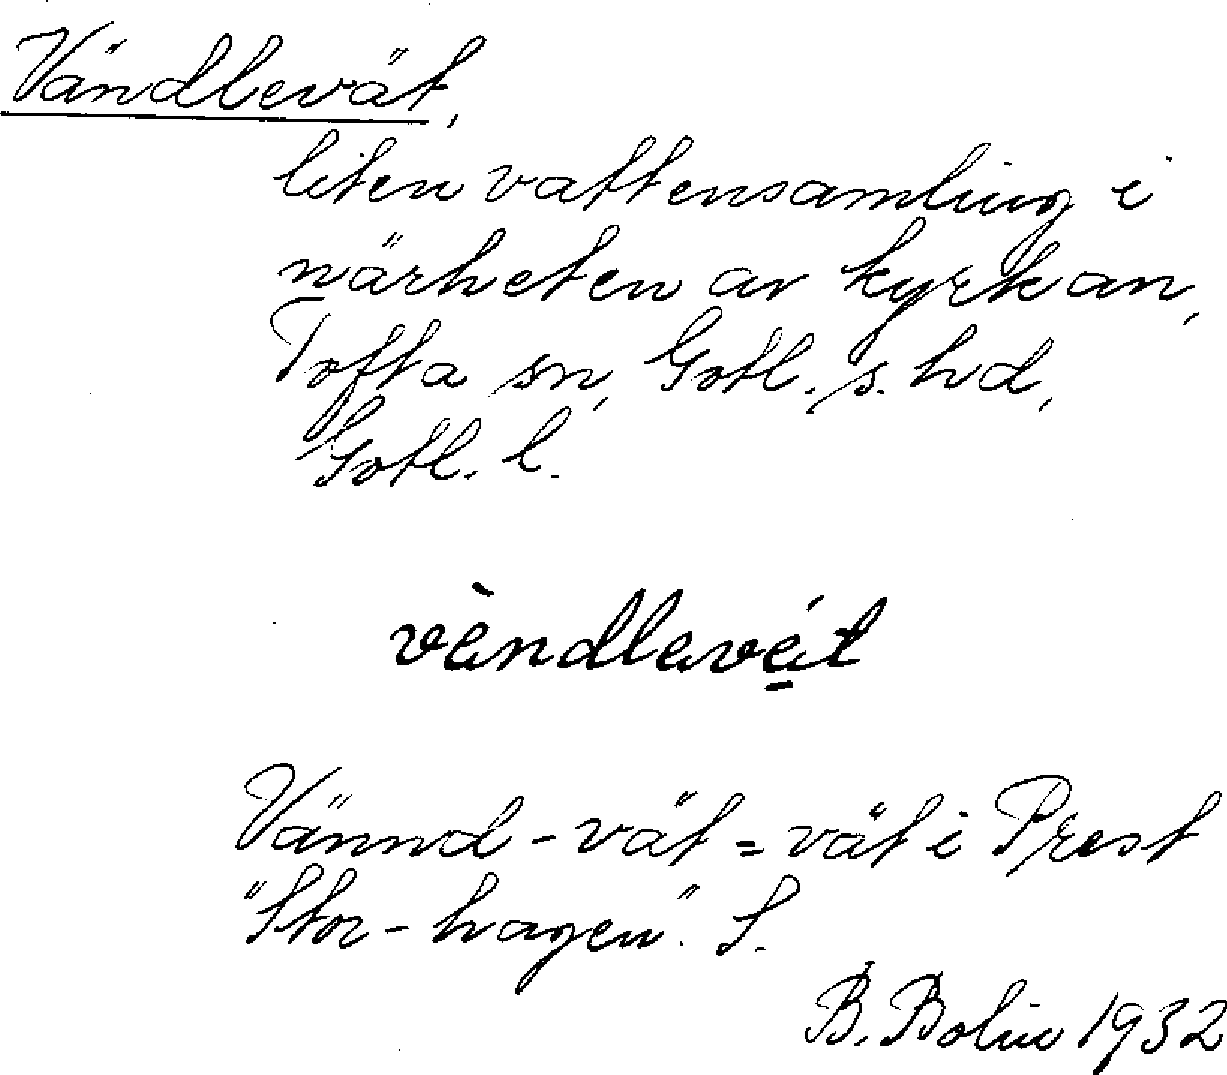 Vändlevät,
liten vattensamling i
närheten av kyrkan,
Tofta sn, Gotl. s. hd,
Gotl. l.
vȁndlavát
Vännd-vät = vät i Prest
"Stor-hagen". S.
B. Bolin 1932